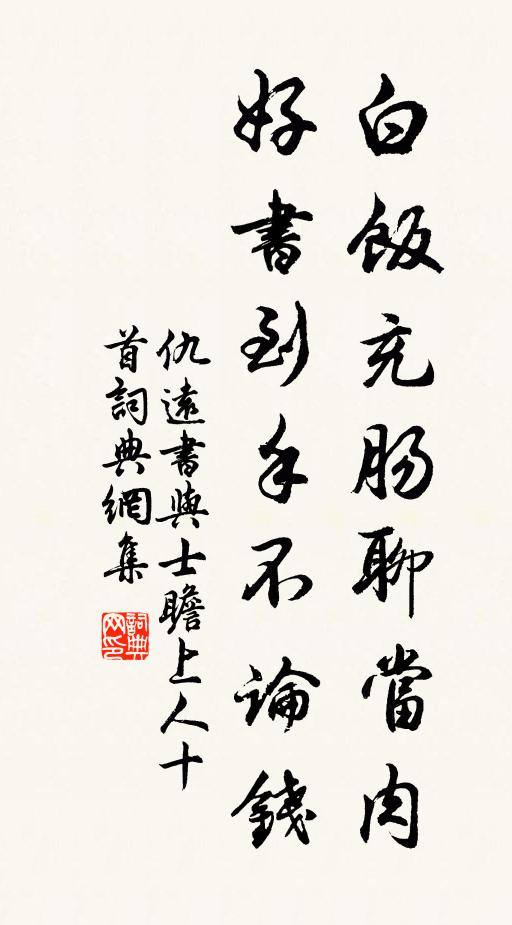 白飯充肠聊當肉
好書到手不論錢
仇遠書與士瞻上人十
首詞典網集
詞典网印